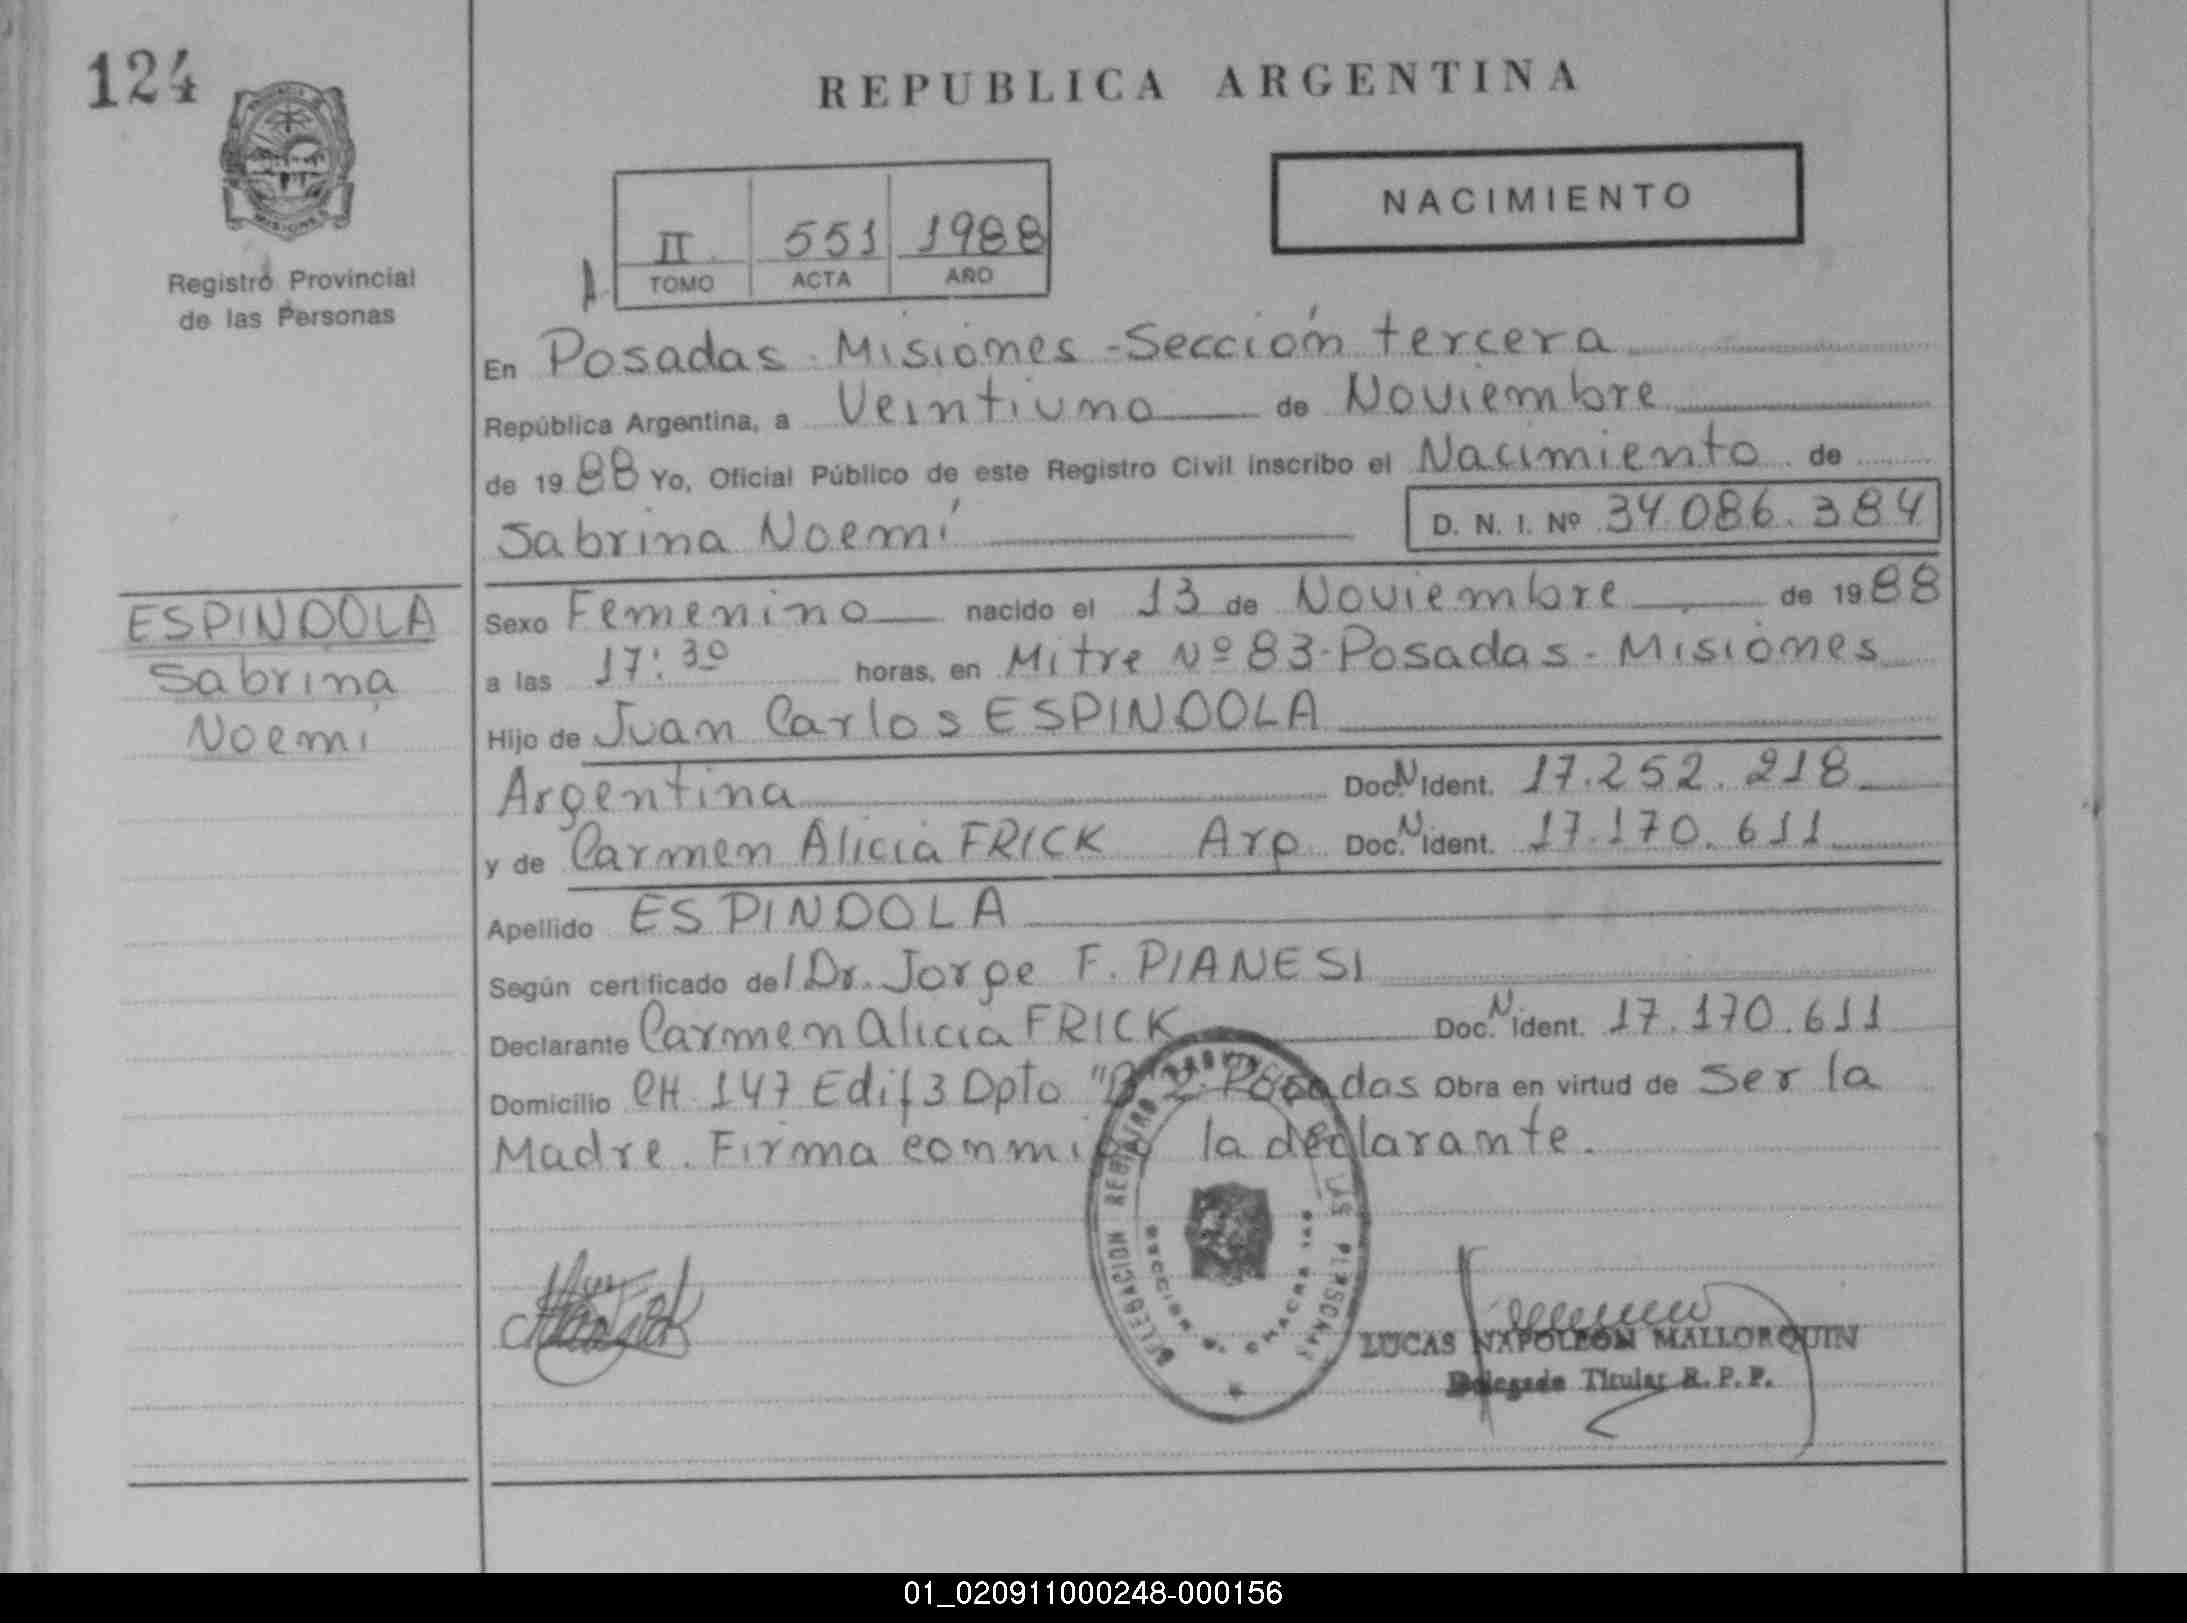 124
REPUBLICA ARGENTINA
NACIMIENTO
II 551 1988
TOMO ACTA AÑO
Registro Provincial
de las Personas
En Posadas. Misiones - Sección tercera
República Argentina, a Veintiuno de Noviembre
de 1988 Yo, Oficial Público de este Registro Civil inscribo el Nacimiento de
Sabrina Noemí D. N. I. Nº 34.086.384
ESPINDOLA
Sabrina
Noemí
Sexo Femenino nacido el 13 de Noviembre de 1988
a las 17:30 horas, en Mitre Nº 83-Posadas-Misiones
Hijo de Juan Carlos ESPINDOLA
Argentina Doc. N Ident. 17.252.218
y de Carmen Alicia FRICK Arg. Doc. N Ident. 17.170.611
Apellido ESPINDOLA
Según certificado del Dr. Jorge F. PIANESI
Declarante Carmen Alicia FRICK Doc. N Ident. 17.170.611
Domicilio CH 147 Edif 3 Dpto Posadas Obra en virtud de Ser la
Madre. Firma conmigo la declarante.
DELEGACION REGISTRO LAS PERSONAS
SECCION CHACRA
LUCAS NAPOLEON MALLORQUIN
Delegado Titular R. P. P.
01_020911000248-000156